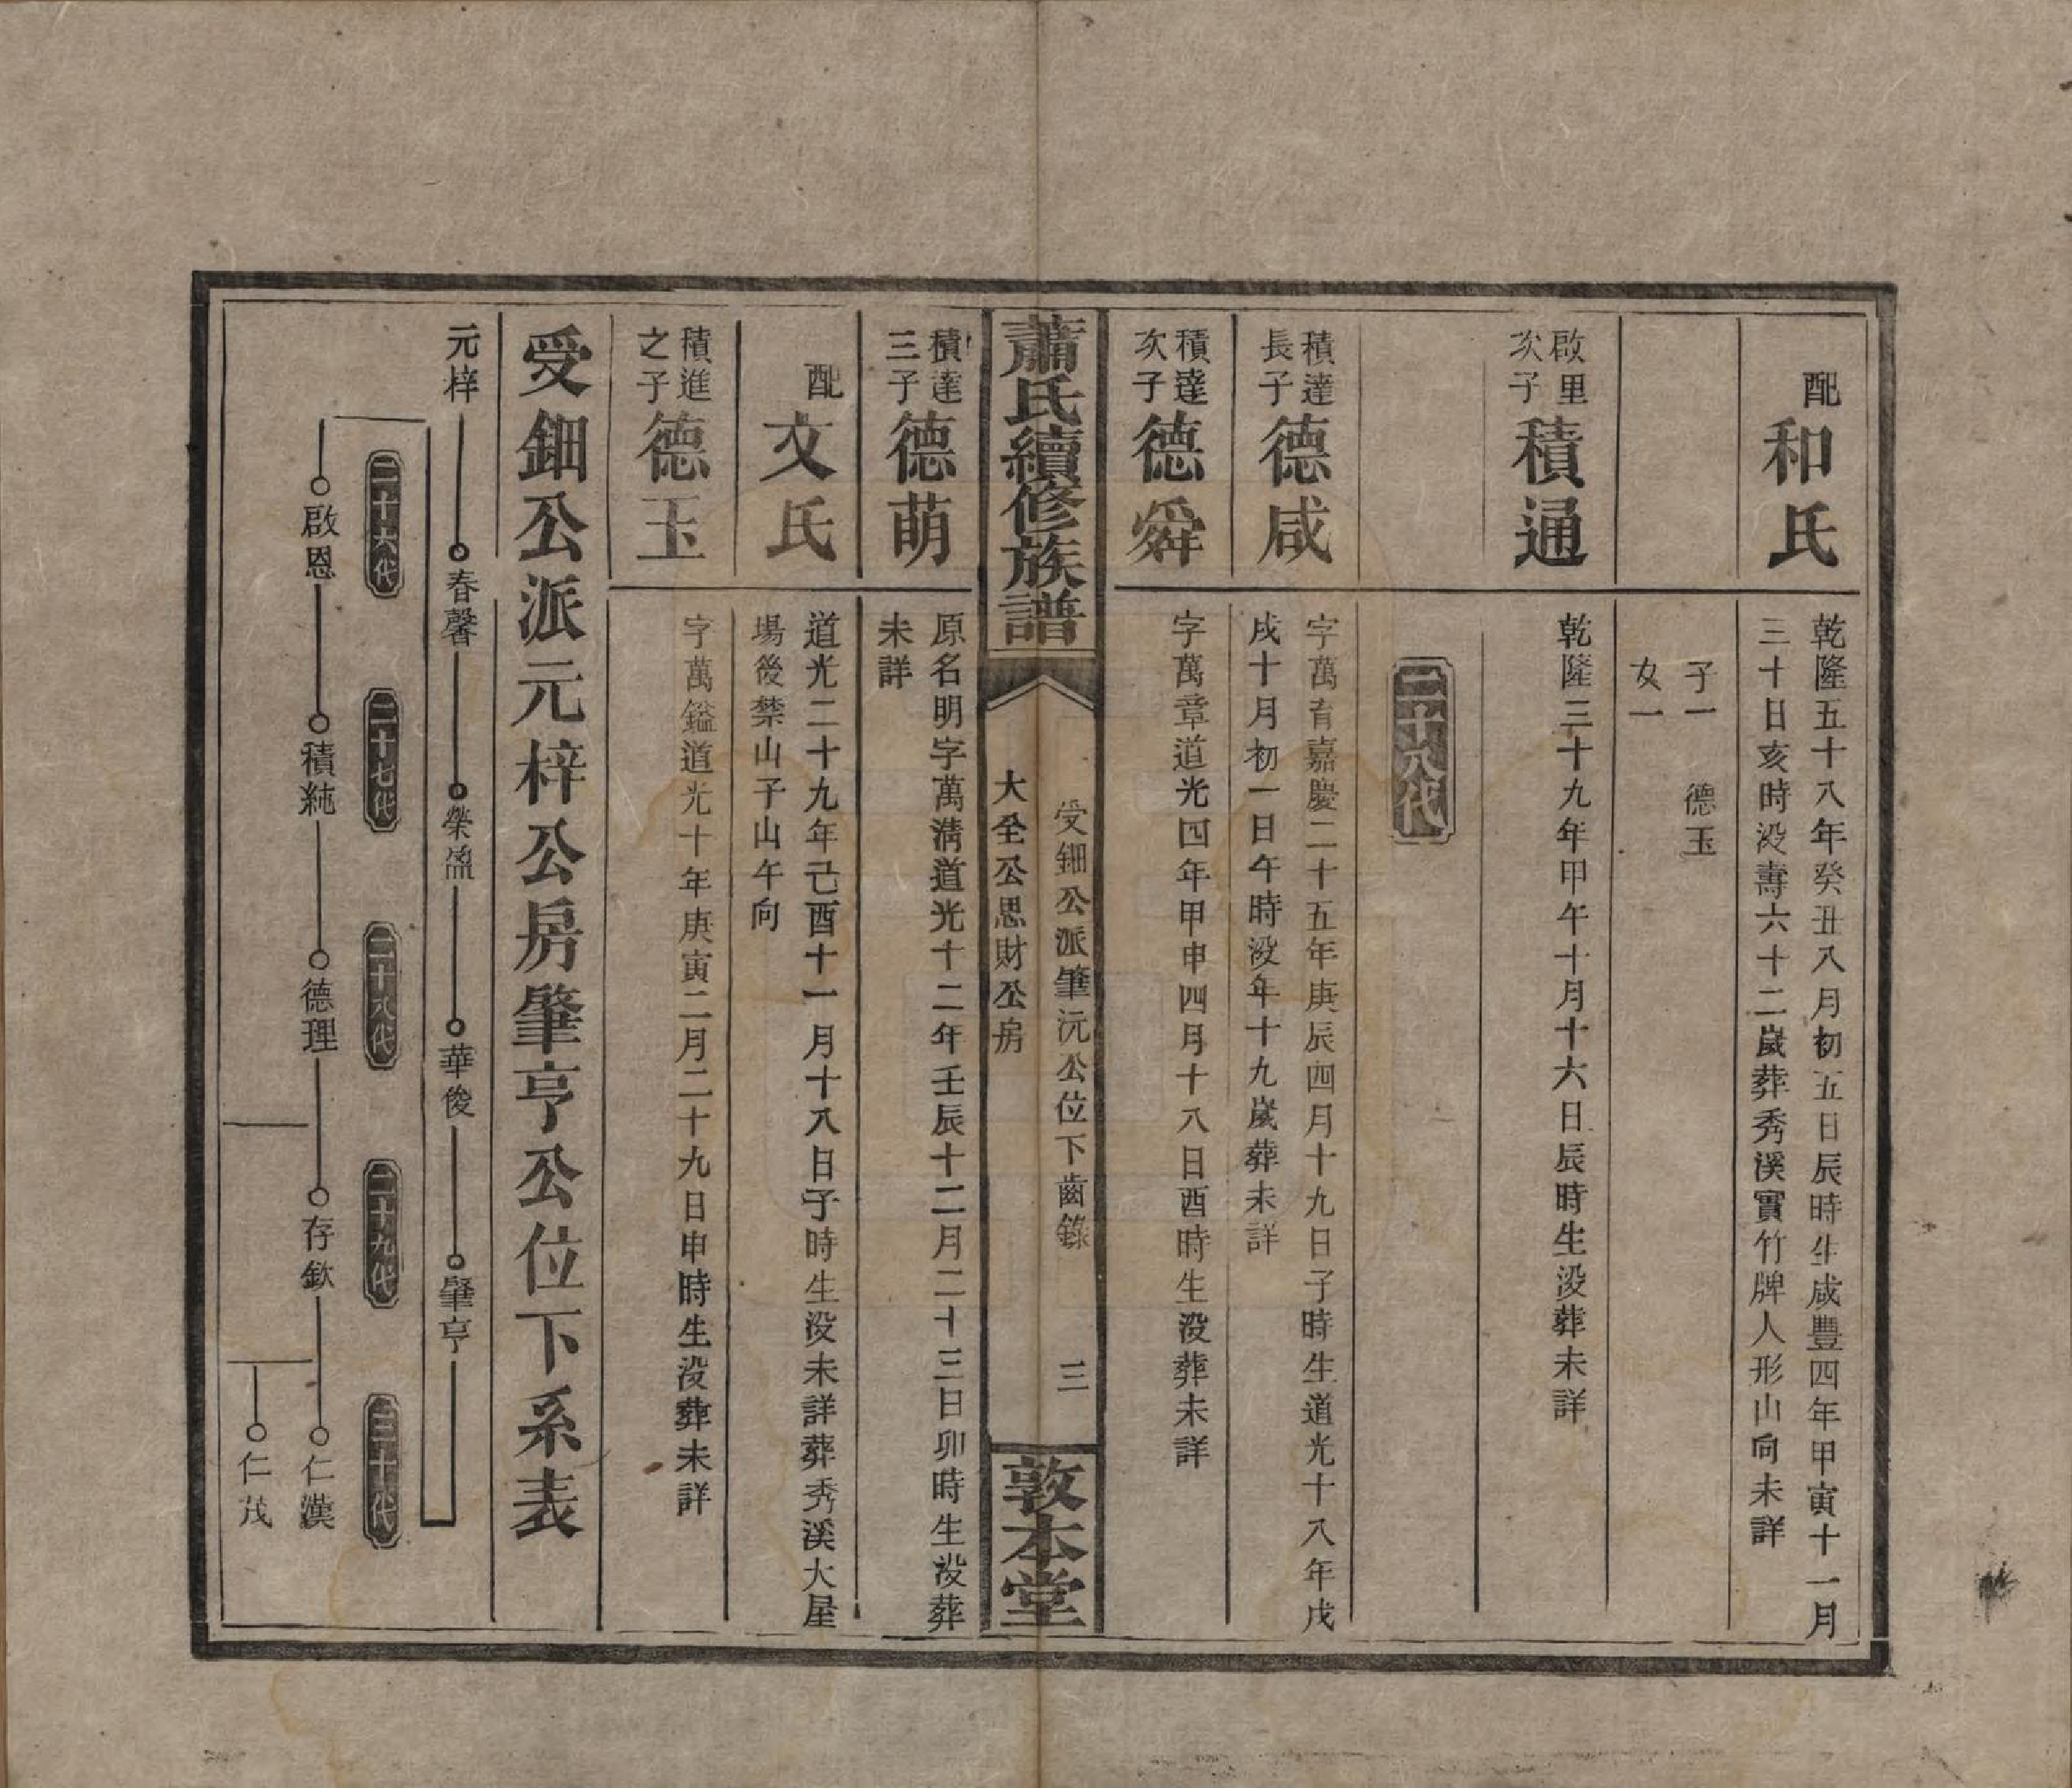 配
和氏
乾隆五十八年癸丑八月初五日辰時生咸豐四年甲寅十一月
三十日亥時没壽六十二嵗葬秀溪實竹牌人形山向未詳
子一　德玉
女一
啟里
次子
積通
乾隆三十九年甲午十月十六日辰時生没葬未詳
二十八代
積達
長子
德咸
字萬育嘉慶二十五年庚辰四月十九日子時生道光十八年戊
戌十月初一日午時没年十九嵗葬未詳
積達
次子
德舜
字萬章道光四年甲申四月十八日酉時生没葬未詳
蕭氏續修族譜
受鈿公派肇沅公位下齒錄
大全公思財公房
三
敦本堂
積達
三子
德萌
原名明字萬清道光十二年壬辰十二月二十三日卯時生没葬
未詳
配
文氏
道光二十九年己酉十一月十八日子時生没未詳葬秀溪大屋
場後禁山子山午向
積進
之子
德玉
字萬鎰道光十年庚寅二月二十九日申時生没葬未詳
受鈿公派元梓公房肇亨公位下系表
元梓
春馨
榮盈
華俊
肇亨
二十六代
二十七代
二十八代
二十九代
三十代
啟恩
積純
德理
存欽
仁漢
仁茂